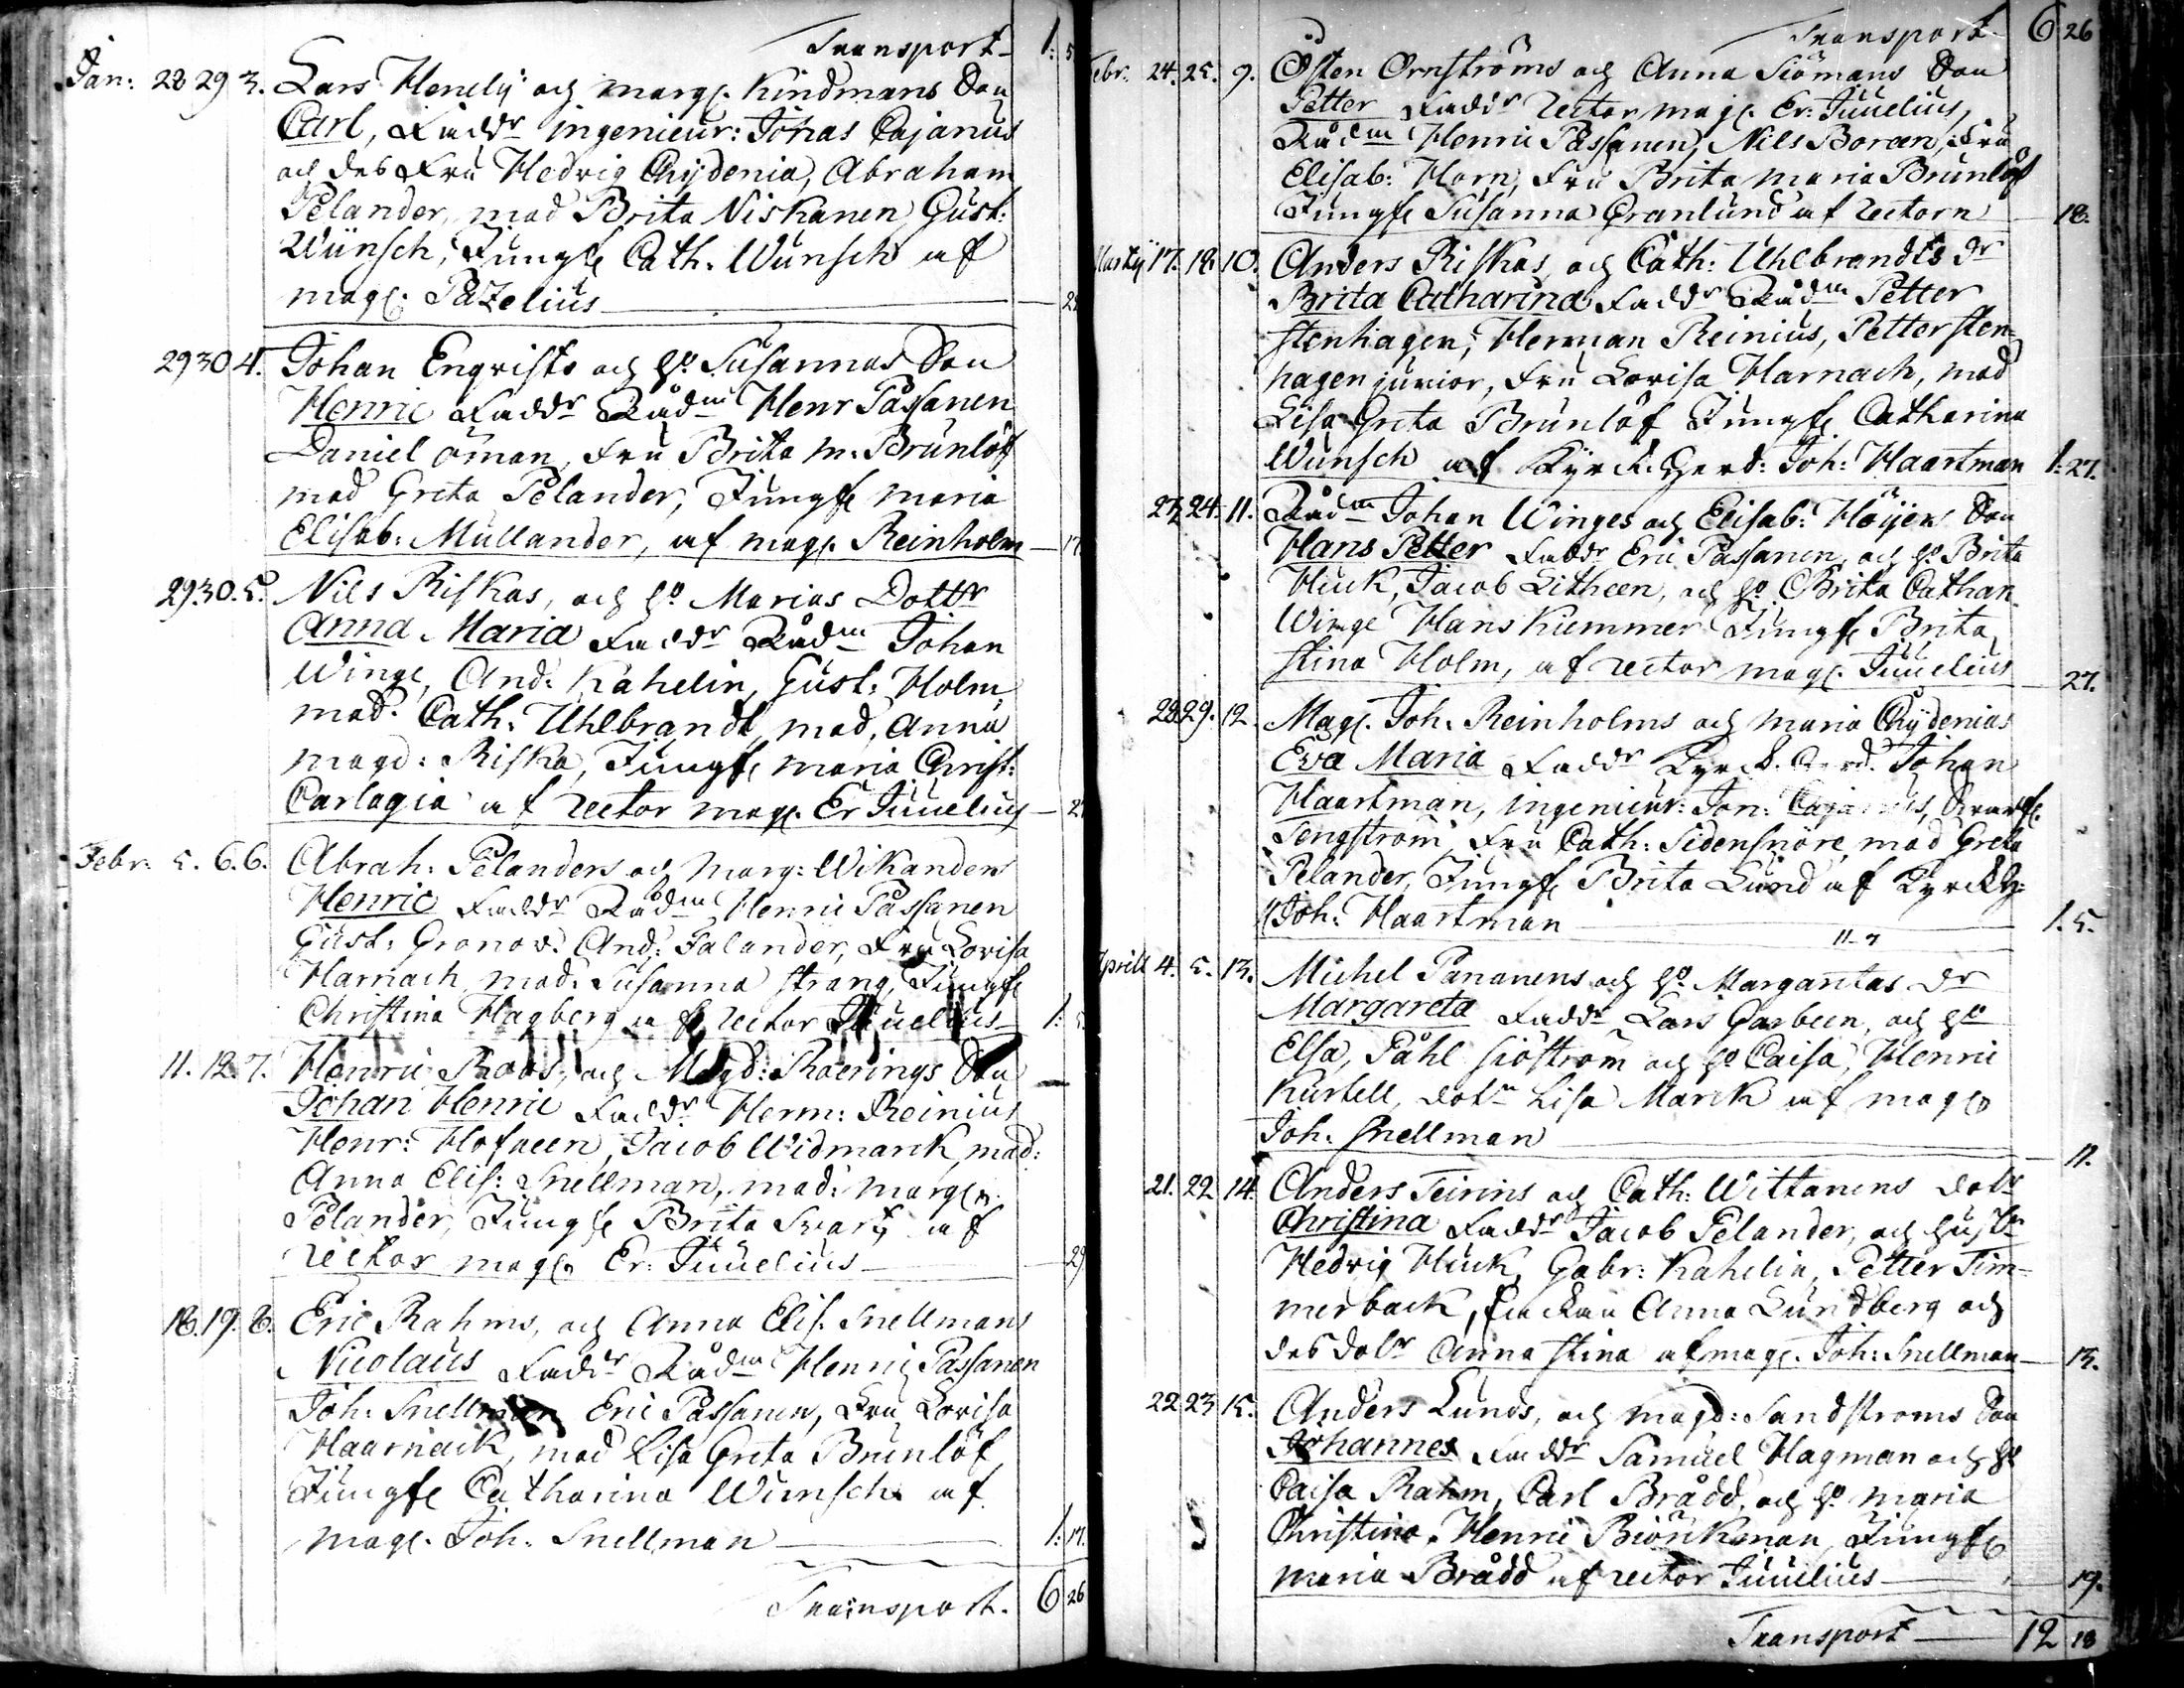 Transport 1: 5
Jan: 28 29 3. Lars Henely och Marg. Kindmans Son
Carl, Faddr ingenieur: Johas Cajanus
och des Fru Hedvig Chydenia, Abraham
Pelander, mad Brita Niskanen, Gust:
Wünsch, Jungf. Cath. Wünsch af
mag. Pazelius
29 30 4. Johan Enqvists och ho Susannas Son
Henric Faddr Rådm Henr Passanen
Daniel öman, Fru Brita M. Brunlöf
mad Greta Pelander, Jungf Maria
Elisab: Mullander, af mag. Reinholm 17.
29. 30. 5. Nils Riskas, och ho Marias Dottr
Anna Maria Faddr Rådm Johan
Winge, And: Kahelin, Gust: Holm
mad. Cath. Uhlbrandt, mad, Anna
magd: Riska, Jungf, maria Christ:
Carlagia af rector mag. Er Juuelius
Febr: 5. 6. 6. Abrah: Pelanders och Marg: Wikanders
Henric Faddr Rådm Henric Passanen
Gust: Gronow. And: Falander, Fru Lovisa
Harnach, mad: Susanna Strang, Jungf
Christina Hagberg af rector Juuelius 1: 5.
11. 12. 7. Henric Roos, och Magd: Roerings Son
Johan Henric Faddr Herm: Reinius
Henr: Hofneen, Jacob Widmark, mad:
Anna Elis: Snellman, mad: Marg
Pelander, Jungf Brita Svartz af
rector mag. Er: Juuelius 29
18. 19. 8. Eric Rahms, och Anna Elis. Snellmans
Nicolaus Faddr Rådm Henric Passanen
Joh: Snellman Eric Passanen, Fru Lovisa
Haarnack, mad Lisa Greta Brunlöf,
Jungf Catharina Wünsch af
mag. Joh. Snellman 1: 17.
Transport. 6 26
Transport. 6 26
Febr. 24. 25. 9. Östen Ornströms och Anna Siömans Son
Petter Faddr rector mag. Er: Juuelius,
Rådm Henric Passanen, Nils Boreen, Fru
Elisab: Horn, Fru Brita Maria Brunlöf
Jungf Susanna Granlund af rectorn 18.
Martij 17. 18. 10. Anders Riskas, och Cath: Uhlbrandts Dr
Brita Catharina Faddr Rådm Petter
Stenhagen, Herman Reinius, Petter Sten-
hagen junior, Fru Lovisa Harnach, mad
Lisa Greta Brunlöf Jungf. Catharina
Wünsch af Kyrck. Herd: Joh: Haartman 1: 27.
23 24. 11. Rådm Johan Winges och Elisab: Höijers Son
Hans Petter Faddr Eric Passanen, och ho Brita
Huck, Jacob Litheen, och ho Brita Cathar.
Winge Hans Kiemmer Jungf Brita
Stina Holm, af rector mag. Juuelius 27.
28. 29. 12. Mag. Joh. Reinholms och Maria Chydenias
Eva Maria Faddr Kyrck. Herd. Johan
Haartman, ingenieur: Jon: Cajanus,
Tengström, Fru Cath: Sidensnöre, mad Greta
Pelander, Jungf Brita Lund af Kyrckh:
Joh: Haartman 1. 5.
Aprill 4. 5. 13. Michel Pananens och ho Margaretas Dr
Margareta Faddr Lars Garbeen, och ho
Elsa, Påhl Siöström och ho Caisa, Henric
Kurtell, dotr Lisa Marck af mag
Joh. Snellman 11.
21. 22 14. Anders Teirins och Cath: Wittanens dotr
Christina Faddr Jacob Pelander, och hustr
Hedvig Huck, Gabr: Kahelin, Petter Tim-
merback, Enckan Anna Lundberg och
des dotr Anna Stina af mag. Joh: Snellman 15.
22 23 15. Anders Lunds, och Magd: Sandströms Son
Johannes Faddr Samuel Hagman och ho
Caisa Rahm, Carl Brådd, och ho Maria
Christina, Henric Biörckman, Jungf
Maria Brådd af rector Juuelius 19.
Transport 12 18